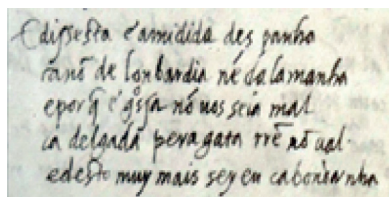 E dissesta é amidida des panha
ca nõ de lonbardia nẽ dalamanha
epor q̃ é gssa nõ uos seia mal
ca delgada pera gata rrẽ nõ ual
edesto muy mais sey eu ca boudanha